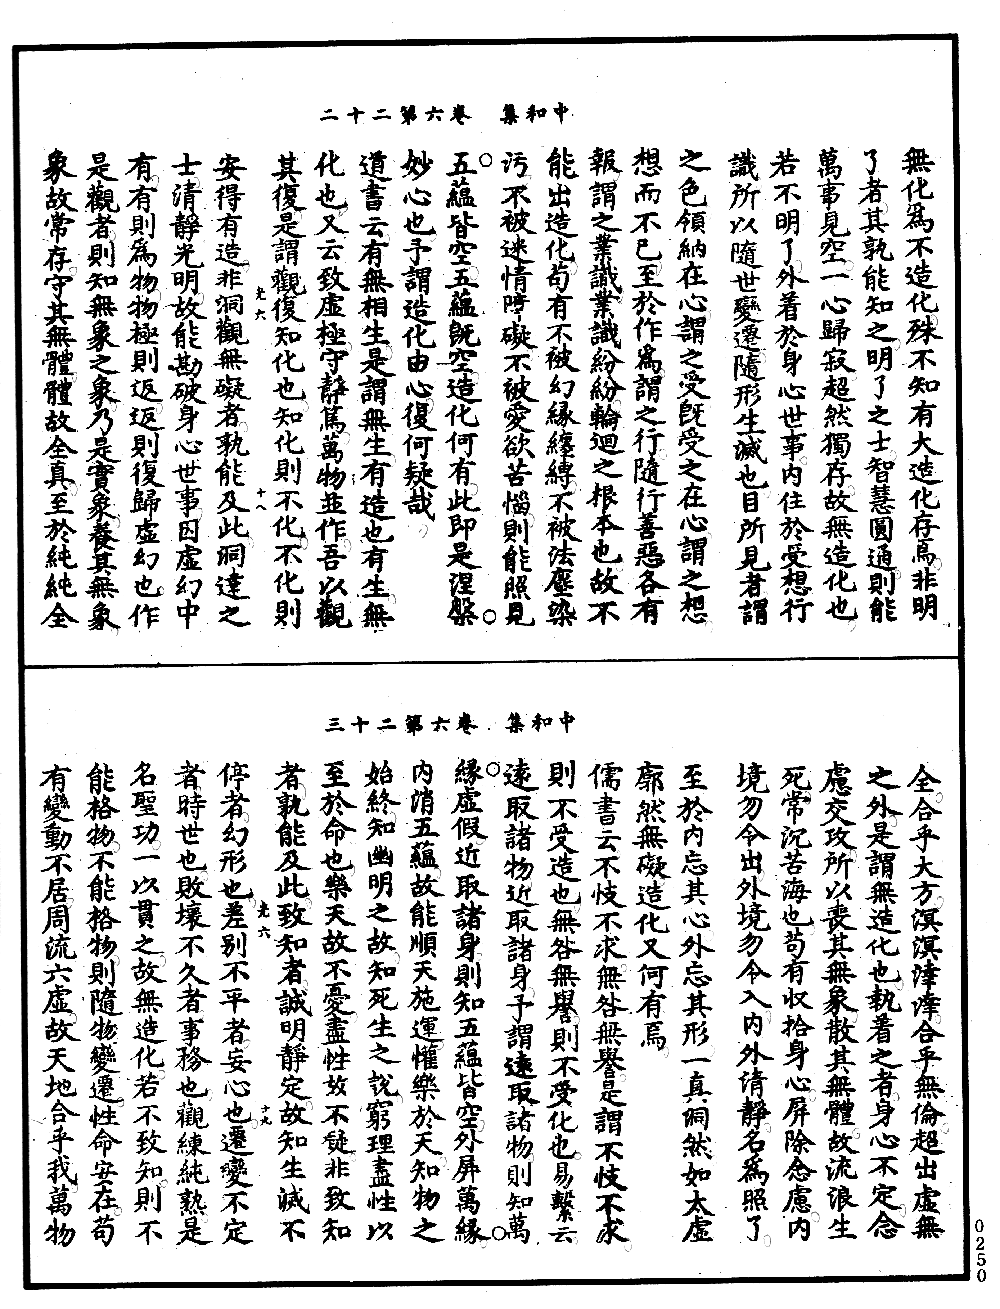 中和集　卷六第二十二
無化爲不造化殊不知有大造化存焉非明
了者其孰能知之明了之士智慧圓通則能
萬事見空一心歸寂超然獨存故無造化也
若不明了外着於身心世事内住於受想行
識所以隨世變遷隨形生滅也目所見者謂
之色領納在心謂之受旣受之在心謂之想
想而不已至於作爲謂之行隨行善惡各有
報謂之業識業識紛紛輪迴之根本也故不
能出造化苟有不被幻緣纏縛不被法塵染
汚不被迷情障礙不被愛欲苦惱則能照見
五蘊皆空五蘊旣空造化何有此即是涅槃
妙心也予謂造化由心復何疑哉
道書云有無相生是謂無生有造也有生無
化也又云致虛極守靜篤萬物並作吾以觀
其復是謂觀復知化也知化則不化不化則
光六　十八
安得有造非洞觀無礙者孰能及此洞達之
士清靜光明故能勘破身心世事因虛幻中
有有則爲物物極則返返則復歸虛幻也作
是觀者則知無象之象乃是實象養其無象
象故常存守其無體體故全真至於純純全
中和集　卷六第二十三
全合乎大方溟溟滓滓合乎無倫超出虛無
之外是謂無造化也執着之者身心不定念
慮交攻所以喪其無象散其無體故流浪生
死常沉苦海也苟有収拾身心屏除念慮内
境勿令出外境勿令入内外清靜名爲照了
至於内忘其心外忘其形一真洞然如太虛
廓然無礙造化又何有焉
儒書云不忮不求無咎無譽是謂不忮不求
則不受造也無咎無譽則不受化也易繫云
遠取諸物近取諸身予謂遠取諸物則知萬
緣虛假近取諸身則知五蘊皆空外屏萬緣
内消五蘊故能順天施運惟樂於天知物之
始終知幽明之故知死生之說窮理盡性以
至於命也樂天故不憂盡性故不疑非致知
者孰能及此致知者誠明靜定故知生滅不
光六　十九
停者幻形也差别不平者妄心也遷變不定
者時世也敗壞不久者事務也觀練純熟是
名聖功一以貫之故無造化若不致知則不
能格物不能格物則隨物變遷性命安在苟
有變動不居周流六虛故天地合乎我萬物
0250